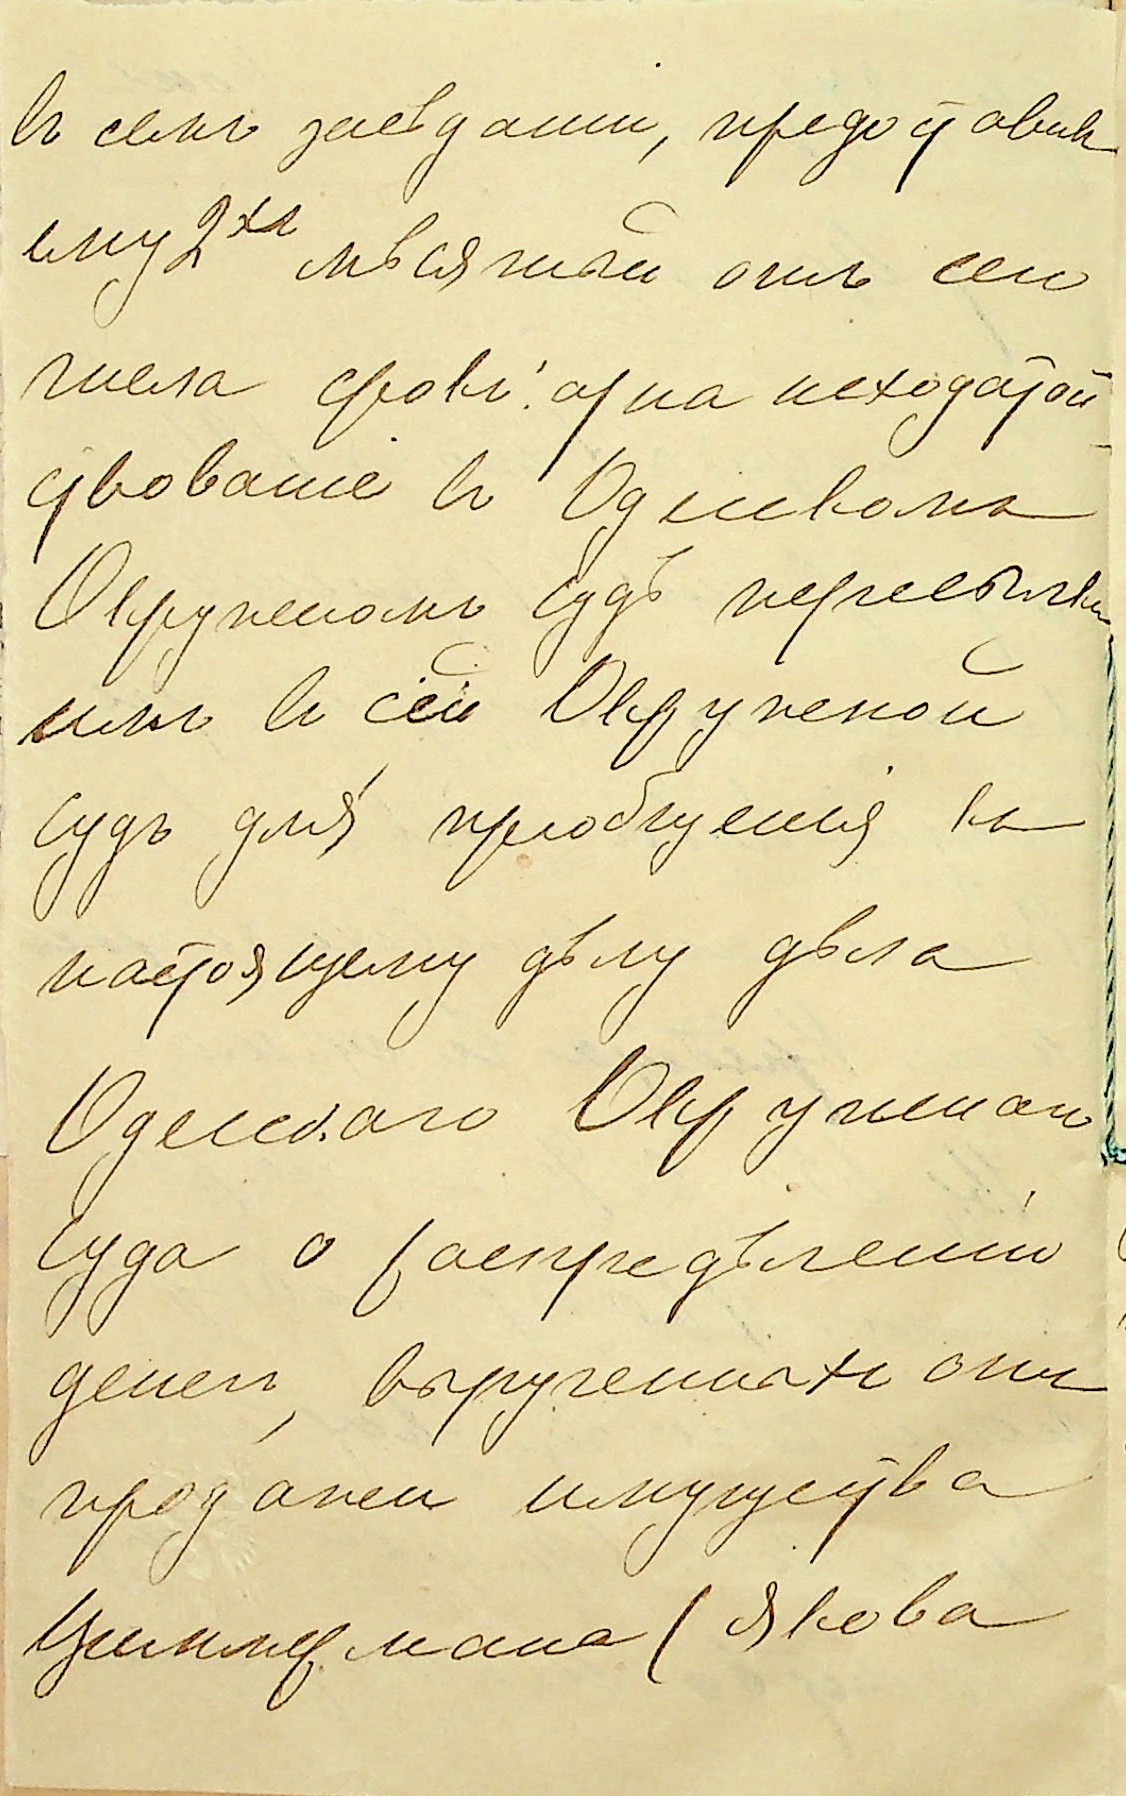 въ семъ засѣданіи, предоставивъ
ему 2хъ мѣсячный отъ сего
числа срокъ на исходатай
ствованіе въ Одесскомъ
Окружномъ Судѣ пересылки
имъ въ сей Окружной
Судъ для пріобщенія къ
настоящему дѣлу дѣла
Одесскаго Окружнаго
Суда о распредѣленіи
денегъ, вырученныхъ отъ
продажи имущества
Циммермана (Якова